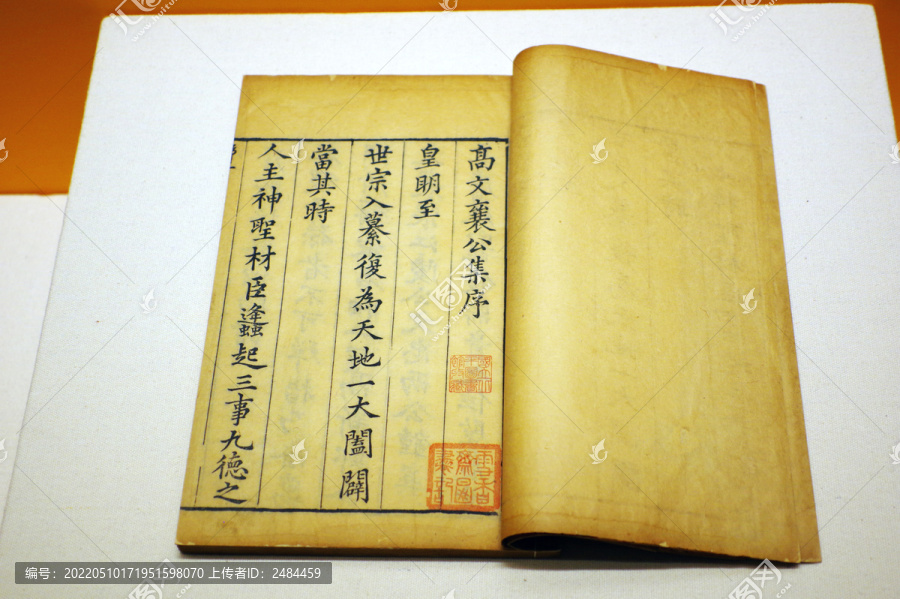 高文襄公集序
皇明至
世宗入纂復為天地一大闔闢
當其時
人主神聖材臣蠭起三事九德之
雪香
編号：20220510171951598070 上传者ID：2484459